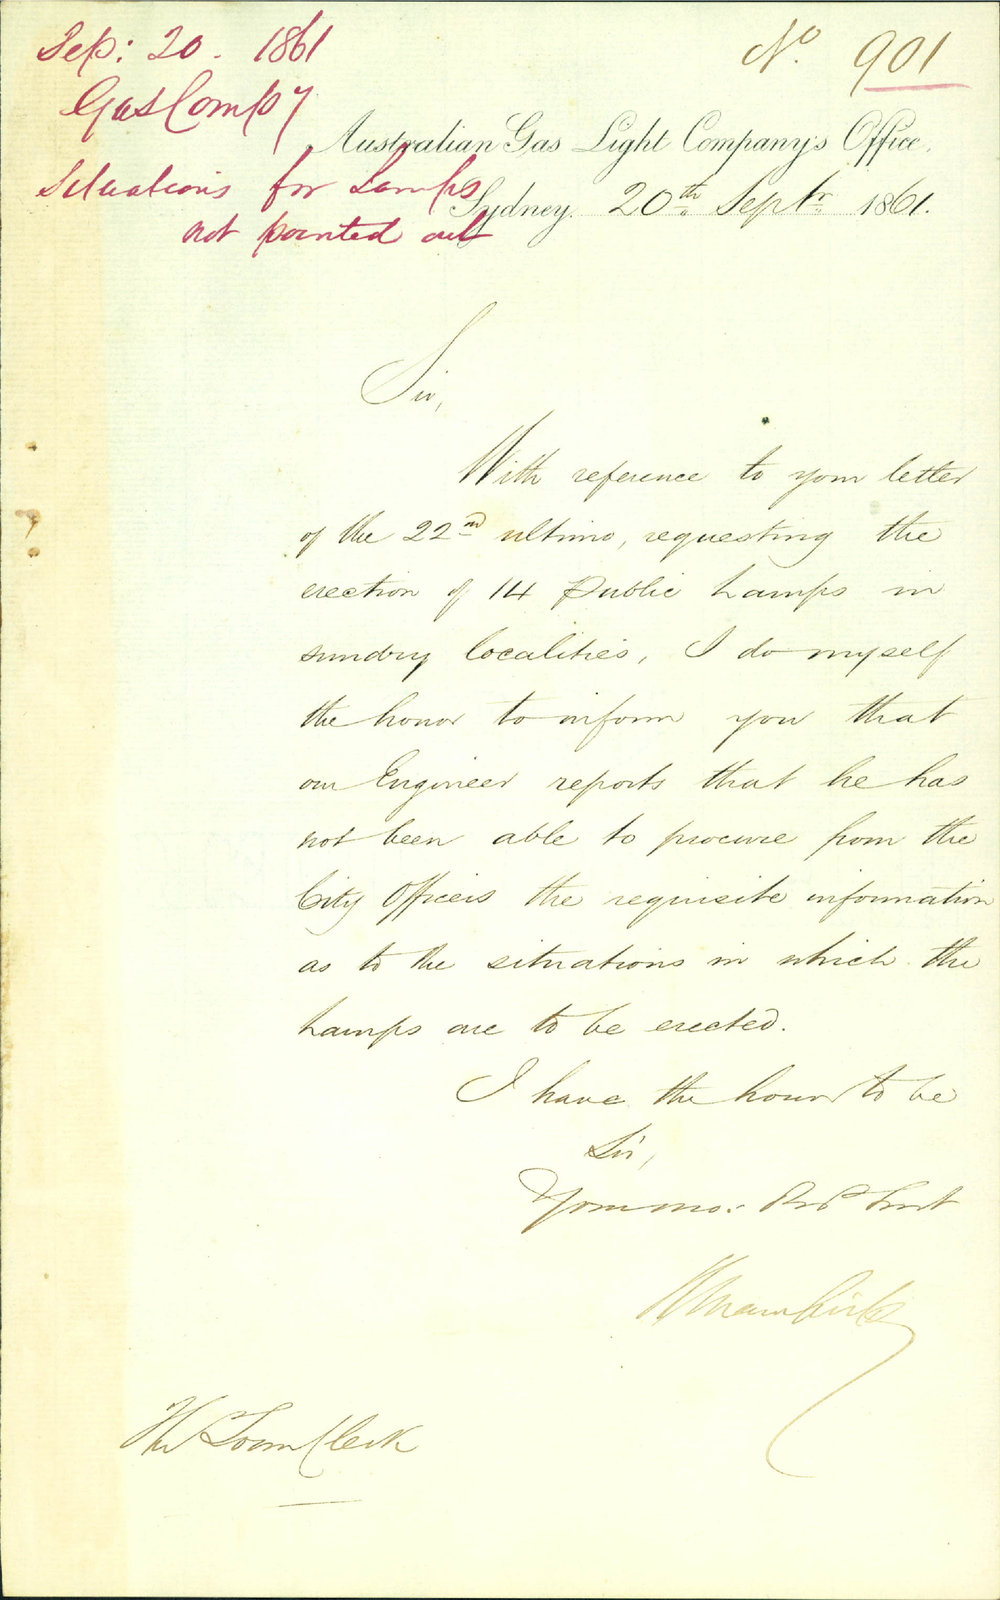 Sep: 20. 1861
Gas Compy
Situations for Lamps
not pointed out
No. 901
Australian Gas Light Company's Office,
Sydney, 20th Septr. 1861.
Sir,
With reference to your letter
of the 22nd ultimo, requesting the
erection of 14 Public Lamps in
sundry localities, I do myself
the honor to inform you that
our Engineer reports that he has
not been able to procure from the
City Officers the requisite information
as to the situations in which the
Lamps are to be erected.
I have the honor to be
Sir,
Your mo: Obt Servt
The Town Clerk